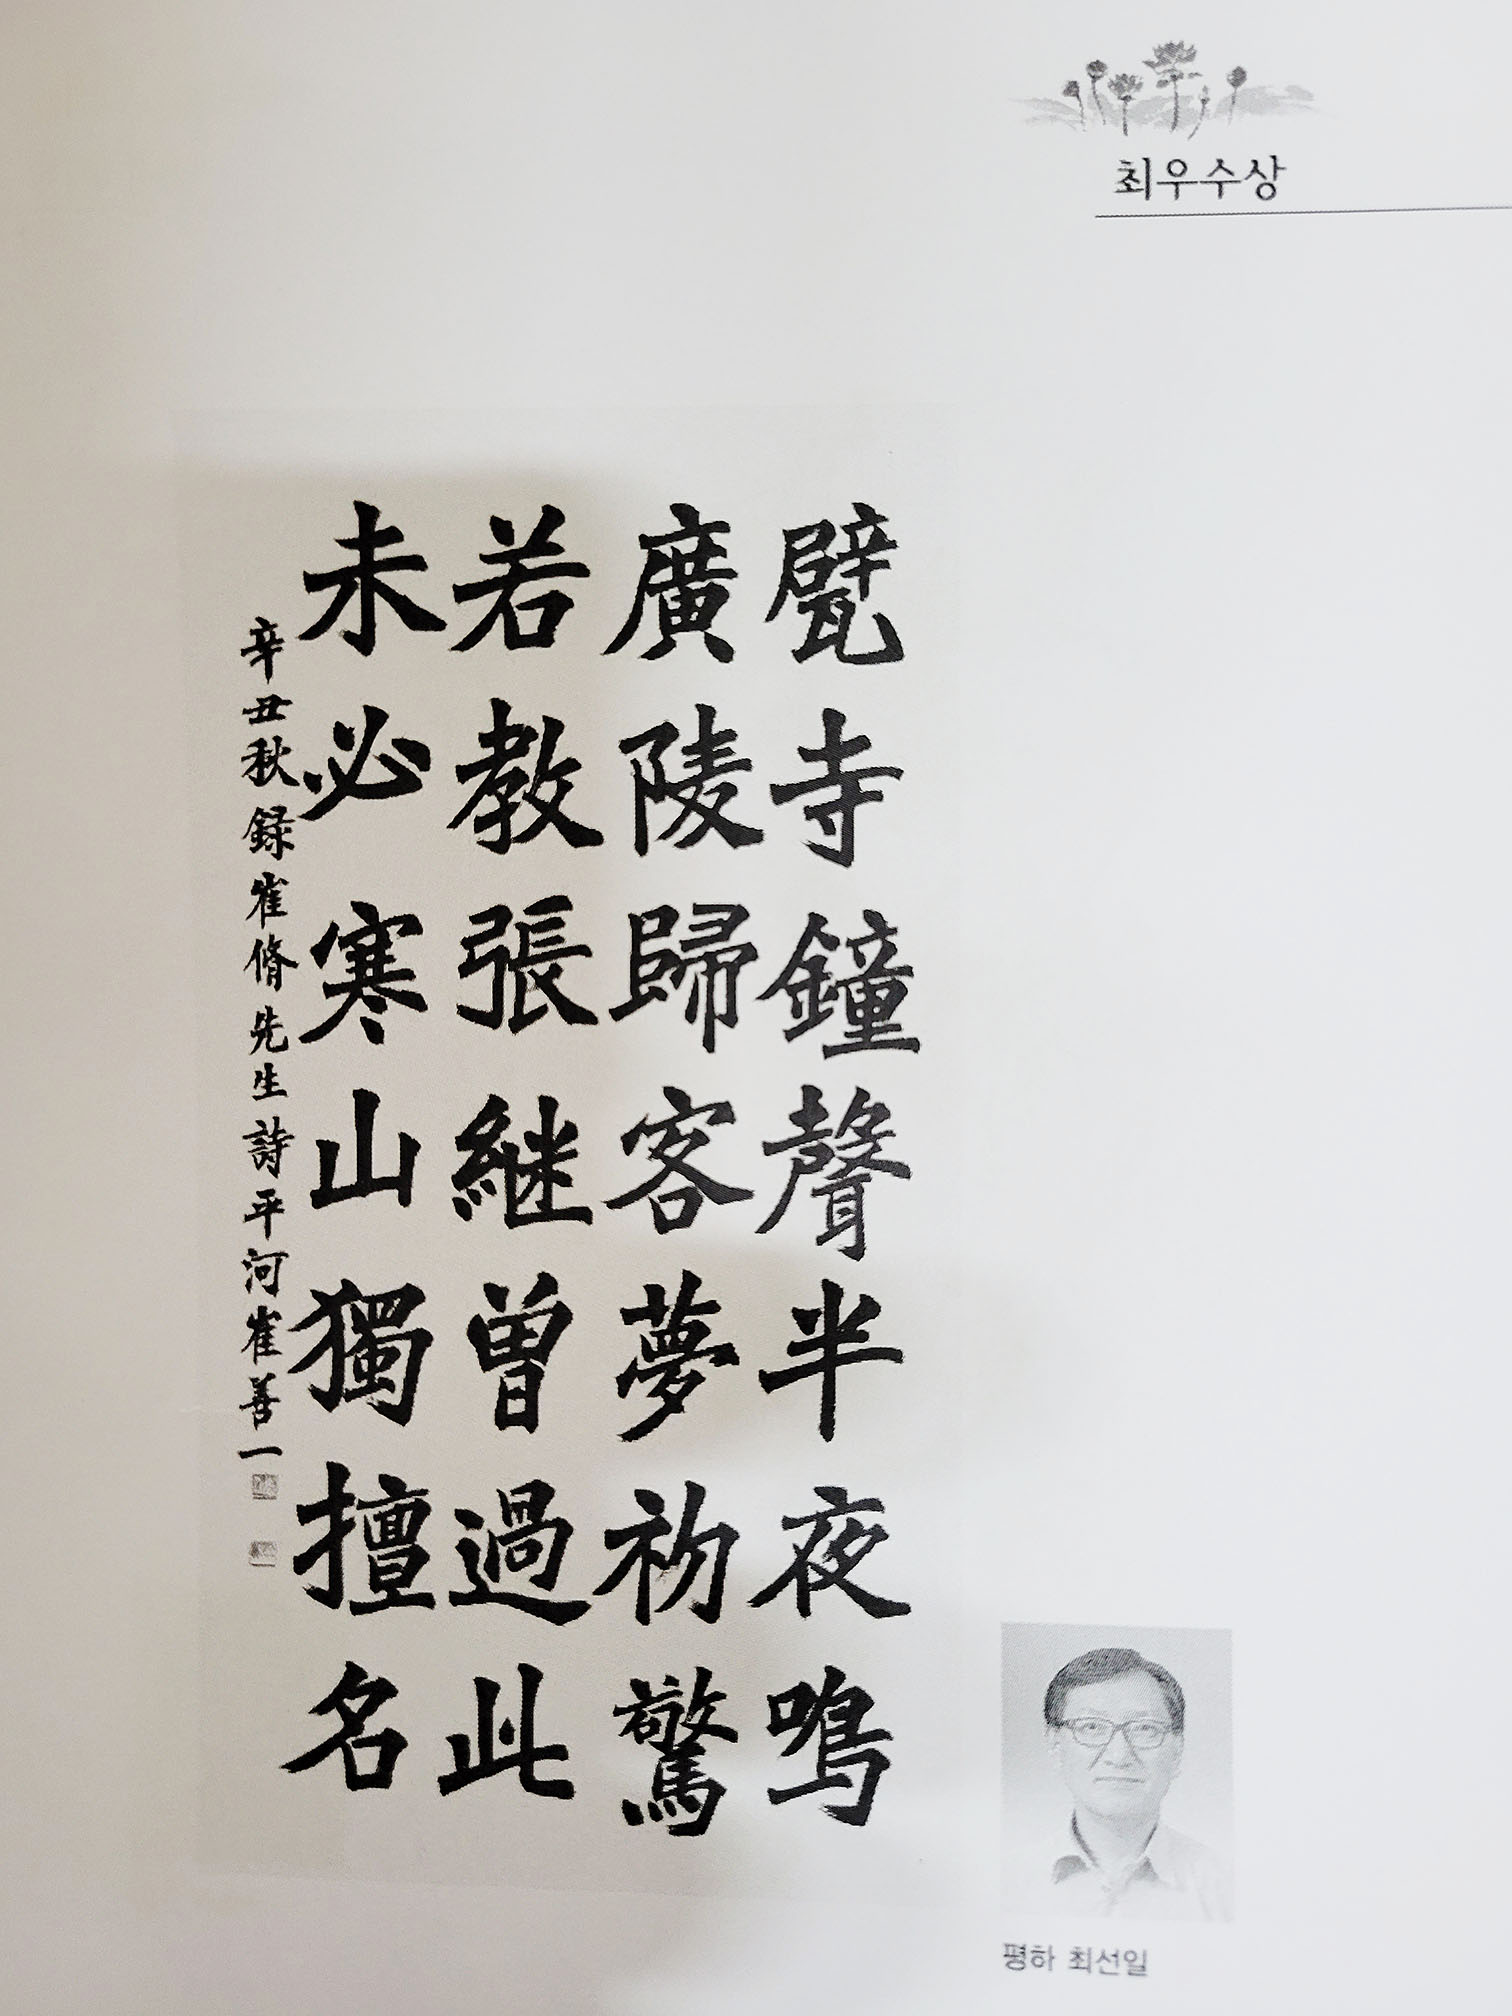 최우수상
甓寺鐘聲半夜鳴
廣陵歸客夢初驚
若教張継曽過此
未必寒山獨擅名
辛丑秋録崔脩先生詩平河崔善一
평하 최선일